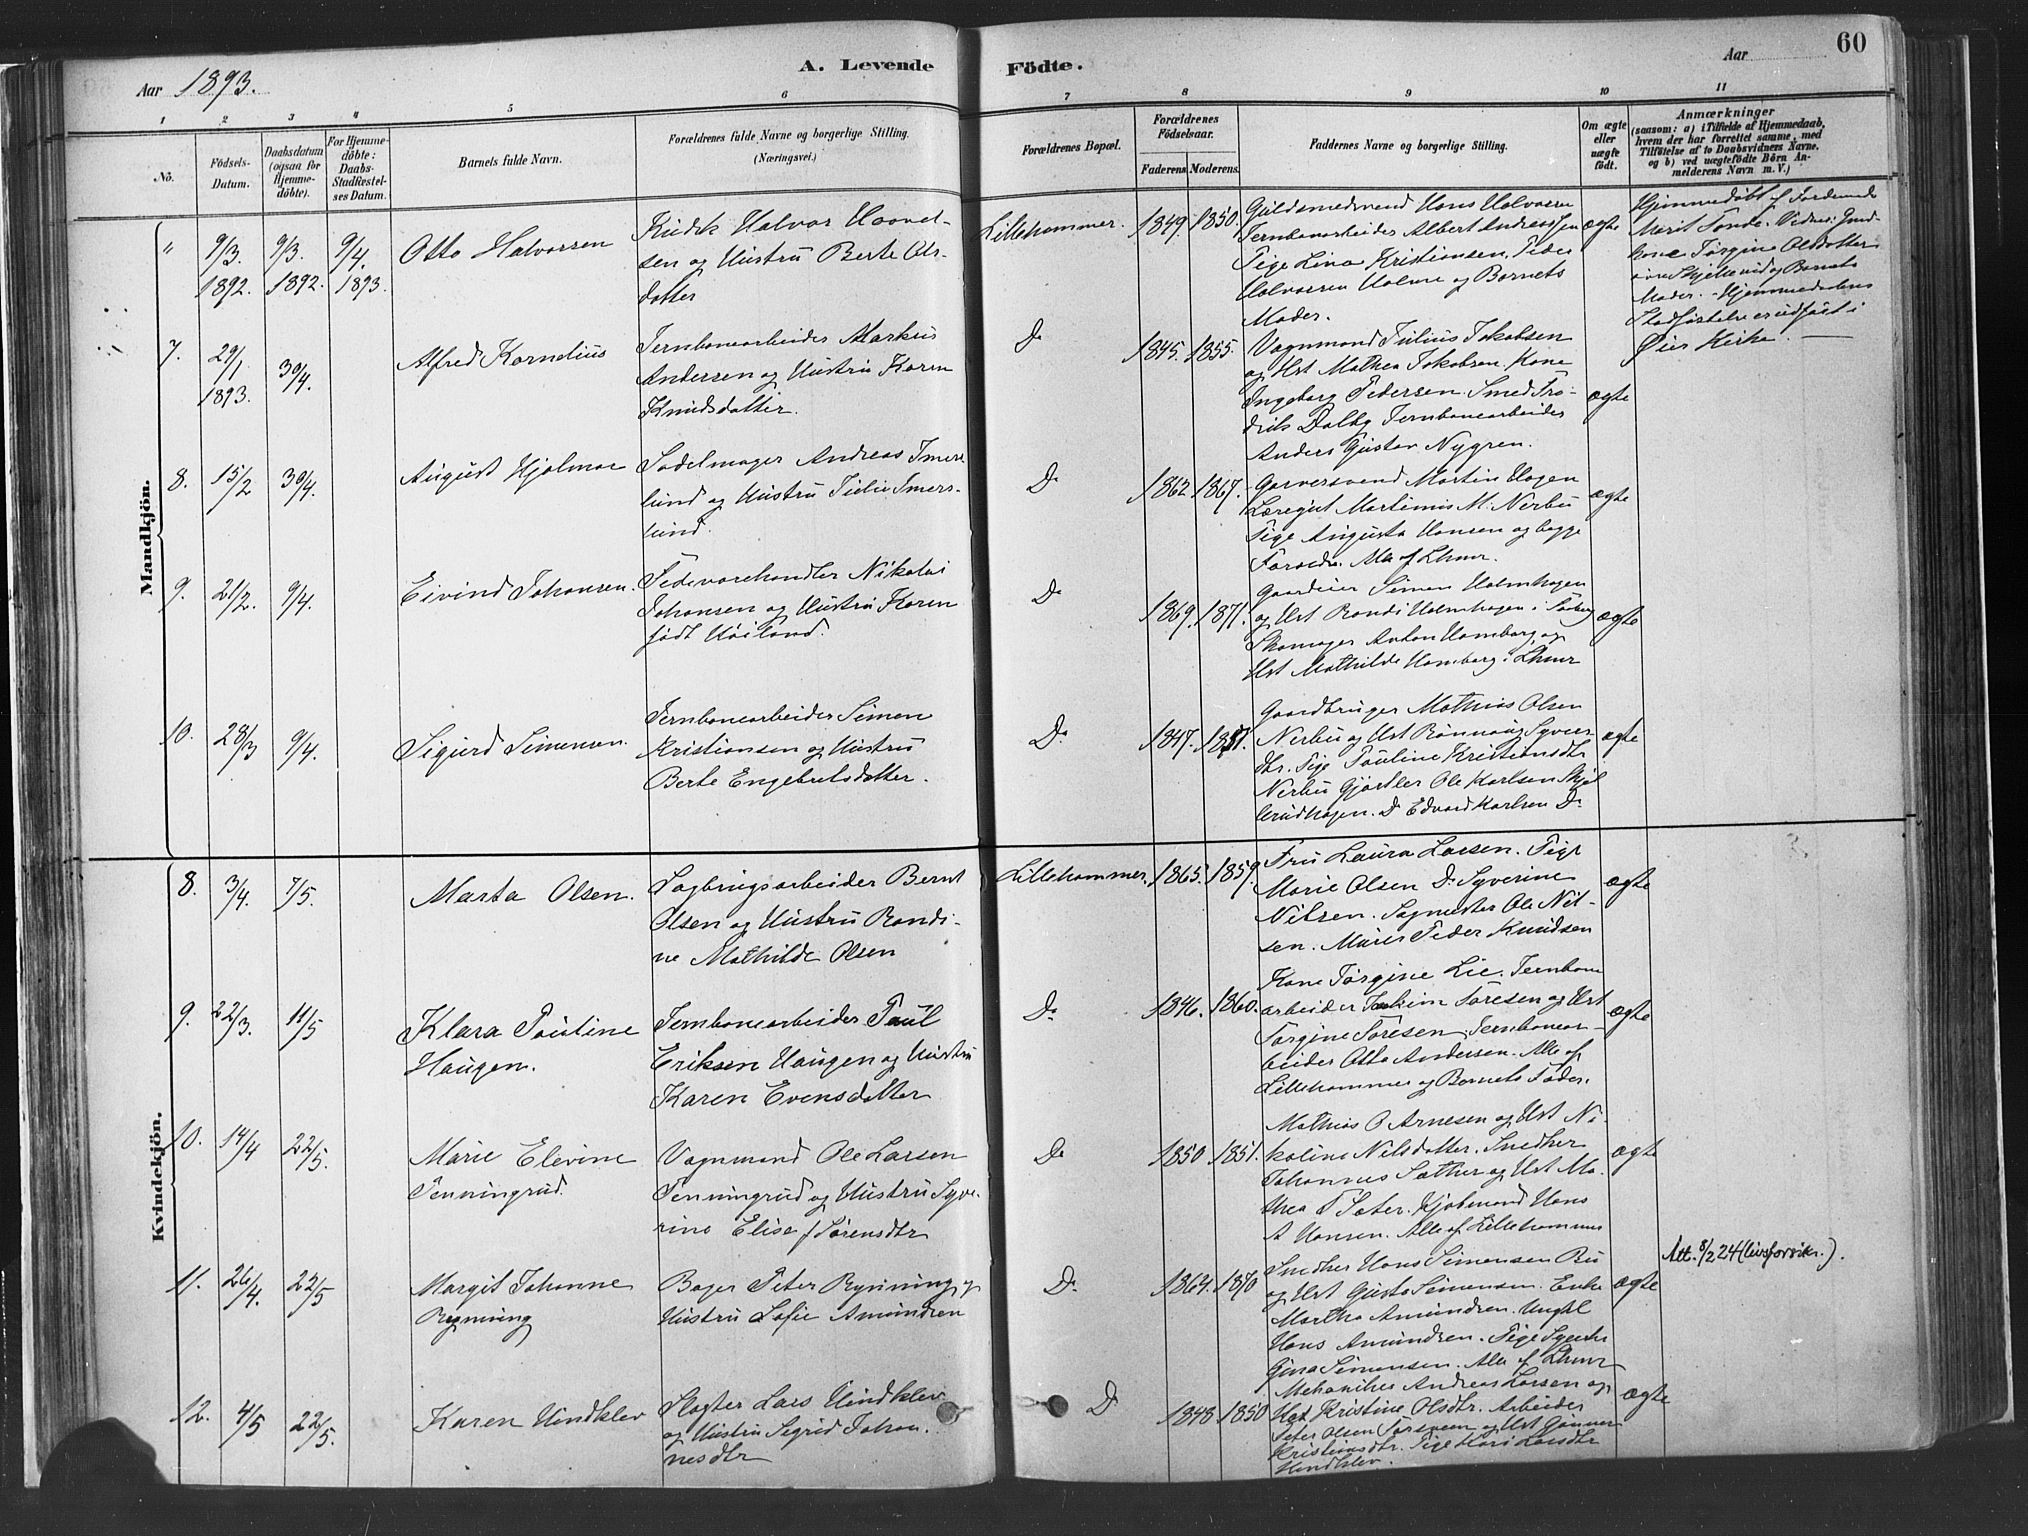 Aar 1893.
A. Levende
Födte.
Aar
60
1 2 3 4 5 6 7 8 9 10 11
No.
Födsels-
Datum.
Daabsdatum
(ogsaa for
Hjemme-
döbte).
For Hjemme-
döbte:
Daabs-
Stadfæstel-
ses Datum.
Barnets fulde Navn.
Forældrenes fulde Navne og borgerlige Stilling.
(Næringsvei.)
Forældrenes Bopæl.
Forældrenes
Födselsaar.
Faderens Moderens.
Faddernes Navne og borgerlige Stilling.
Om ægte
eller
uægte
födt.
Anmærkninger
(saasom: a) i Tilfælde af Hjemmedaab,
hvem der har forrettet samme, med
Tilföielse af to Daabsvidners Navne.
og b) ved uægtefödte Börn An-
melderens Navn m. V.)
Mandkjön.
" 9/3. 1892. 9/3. 1892. 9/4. 1893.
Otto Halvorsen
Halvor Haavel-
sen og Hustru Berte Ols-
datter
Lillehammer.
1849. 1850.
Guldsmedsvend Hans Halvorsen
Jernbanearbeider Albert Andreassen
Pige Lina Kristiansen, Peder
Halvorsen Holme og Barnets
Moder.
ægte
Hjemmedøbt af Jordemod.
Marit Tande. Vidner: Gaard-
kone Jørgine Olsdatter
og Barnets
Moder. Hjemmedaabens
Stadfæstelse er udført i
Øier Kirke.
7. 29/1 1893. 30/4.
Alfred Kornelius
Jernbanearbeider Markus
Andersen og Hustru Karen
Knudsdatter.
Do
1845. 1855.
Vognmand Julius Jakobsen
og Hst Mathea Jakobsen. Kone
Ingeborg Pedersen. Smed Fre-
drik Dalby Jernbanearbeider
Anders Gustav Nygren.
ægte
8. 15/2 30/4.
August Hjalmar
Sadelmager Andreas Smers-
lund og Hustru Julie Smers-
lund.
Do
1862 1867.
Garversvend Martin Hagen
Læregut Martinius M. Nerbu
Pige Augusta Hansen og begge
Forældre. Alle af Lhmr.
ægte
9. 21/2. 9/4.
Eivind Johansen.
Fedevarehandler Nikolai
Johansen og Hustru Karen
født Høiland.
Do
1869. 1871.
Gaardeier Simen Holmhagen
og Hst Randi Holmhagen i Faaberg
Skomager Anton Homborg og
Hst Mathilde Homborg i Lhmr
ægte
10. 28/3 9/4.
Sigurd Simensen.
Jernbanearbeider Simen
Kristiansen og Hustru
Berte Engebretsdatter.
Do
1847. 1851.
Gaardbruger Mathias Olsen
Nerbu og Hst Rønnaug Syver-
dtr. Pige Pauline Kristiansdtr
Nerbu Gjørtler Ole Karlsen Skjel-
lerudhagen. Do Edvard Karlsen Do
ægte
Kvindekjön.
8. 3/4. 7/5.
Marta Olsen.
Sagbrugsarbeider Bernt
Olsen og Hustru Randi-
ne Mathilde Olsen
Lillehammer.
1865. 1859.
Fru Laura Larsen. Pige
Marie Olsen Do Syverine
Nilsen. Sagmester Ole Nil-
sen. Murer Peder Knudsen
ægte
9. 22/3. 11/5
Klara Pauline
Haugen.
Jernbanearbeider Paul
Eriksen Haugen og Hustru
Karen Evensdatter
Do
1846. 1860.
Kone Jørgine Lie. Jernbane
arbeider Joakim Toresen og Hst
Jørgine Toresen. Jernbanear-
beider Otto Andersen. Alle af
Lillehammer og Barnets Fader.
ægte
10. 14/4 22/5.
Marie Elevine
Penningrud.
Vognmand Ole Larsen
Penningrud og Hustru Syve-
rine Elise f Sørensdtr
Do
1850 1851.
Mathias O Arnesen og Hst Ni-
koline Nilsdatter. Snedker
Johannes Sæther og Hst Ma-
thea J Sæter. Kjøbmand Hans
A Hansen. Alle af Lillehammer
ægte
11. 26/4. 22/5
Margit Johanne
Rynning
Bager Peter Rynning og
Hustru Sofie Amundsen
Do
1864. 1870
Snedker Hans Simensen Bu
og Hst Gusta Simensen. Enke
Martha Amundsen. Ungkl
Hans Amundsen. Pige
Gina Simensen. Alle af Lhmr
ægte
Att. 8/2 24 (livsforsikr.).
12. 4/5 22/5.
Karen Hindklev
Slagter Lars Hindklev
og Hustru Sigrid Johan-
nesdtr
Do
1848 1850
Mekaniker Andreas Larsen og
Hst Kristine Olsdtr. Arbeider
Peter Olsen og Hst Gunner
Kristiansdtr. Pige Kari Larsdtr
Hindklev.
ægte